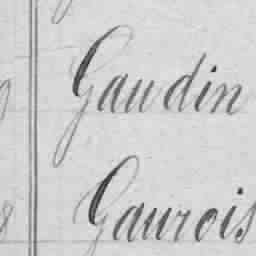 Gaudin
Gaurois